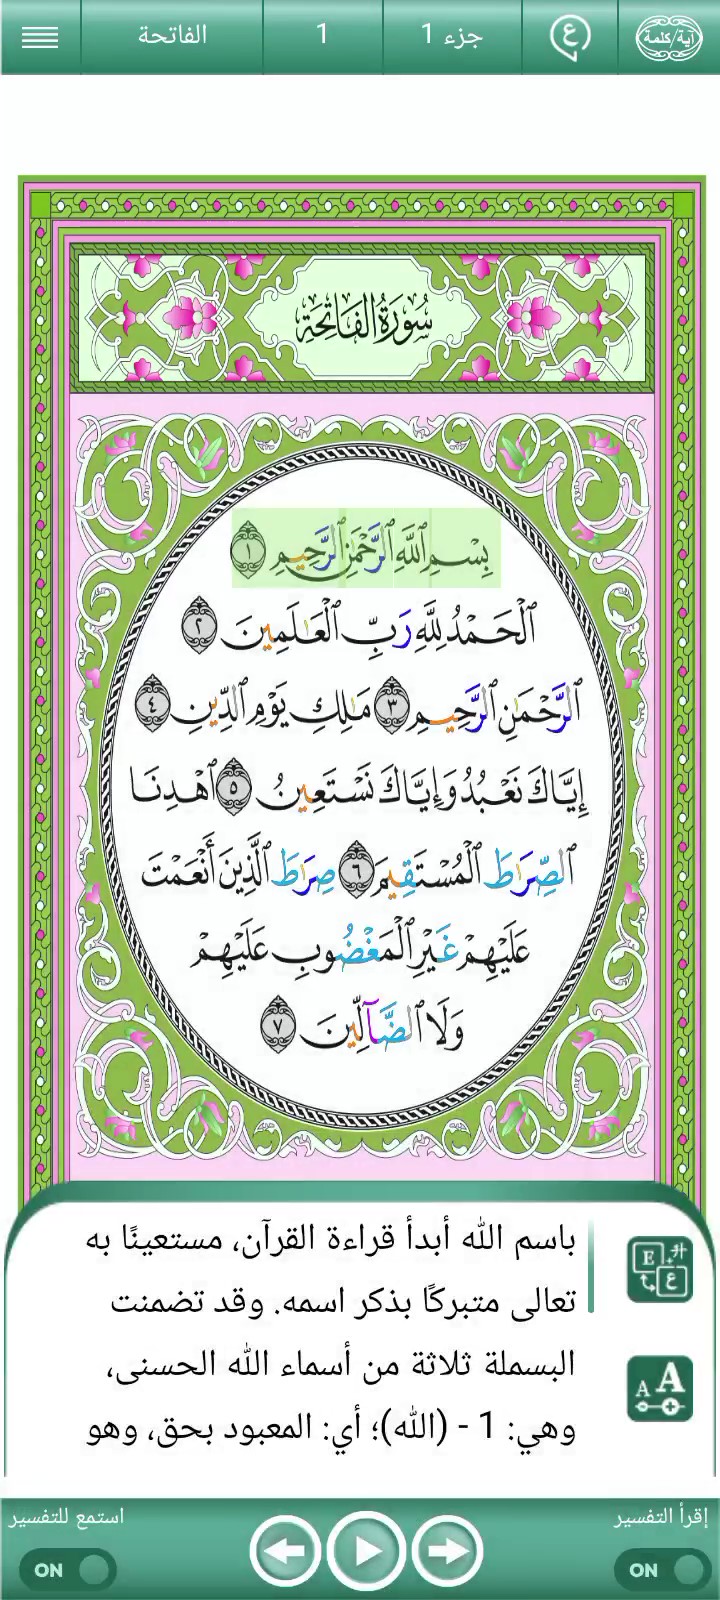 آية/كلمة
ع
جزء 1
1
الفاتحة
سُورَةُ الفَاتِحَةِ
بِسْمِ ٱللَّهِ ٱلرَّحْمَٰنِ ٱلرَّحِيمِ ١
ٱلْحَمْدُ لِلَّهِ رَبِّ ٱلْعَٰلَمِينَ ٢
ٱلرَّحْمَٰنِ ٱلرَّحِيمِ ٣ مَٰلِكِ يَوْمِ ٱلدِّينِ ٤
إِيَّاكَ نَعْبُدُ وَإِيَّاكَ نَسْتَعِينُ ٥ ٱهْدِنَا
ٱلصِّرَٰطَ ٱلْمُسْتَقِيمَ ٦ صِرَٰطَ ٱلَّذِينَ أَنْعَمْتَ
عَلَيْهِمْ غَيْرِ ٱلْمَغْضُوبِ عَلَيْهِمْ
وَلَا ٱلضَّآلِّينَ ٧
باسم الله أبدأ قراءة القرآن، مستعينًا به
تعالى متبركًا بذكر اسمه. وقد تضمنت
البسملة ثلاثة من أسماء الله الحسنى،
وهي: 1 - (الله)؛ أي: المعبود بحق، وهو
E ع
A A
إقرأ التفسير
استمع للتفسير
ON
ON